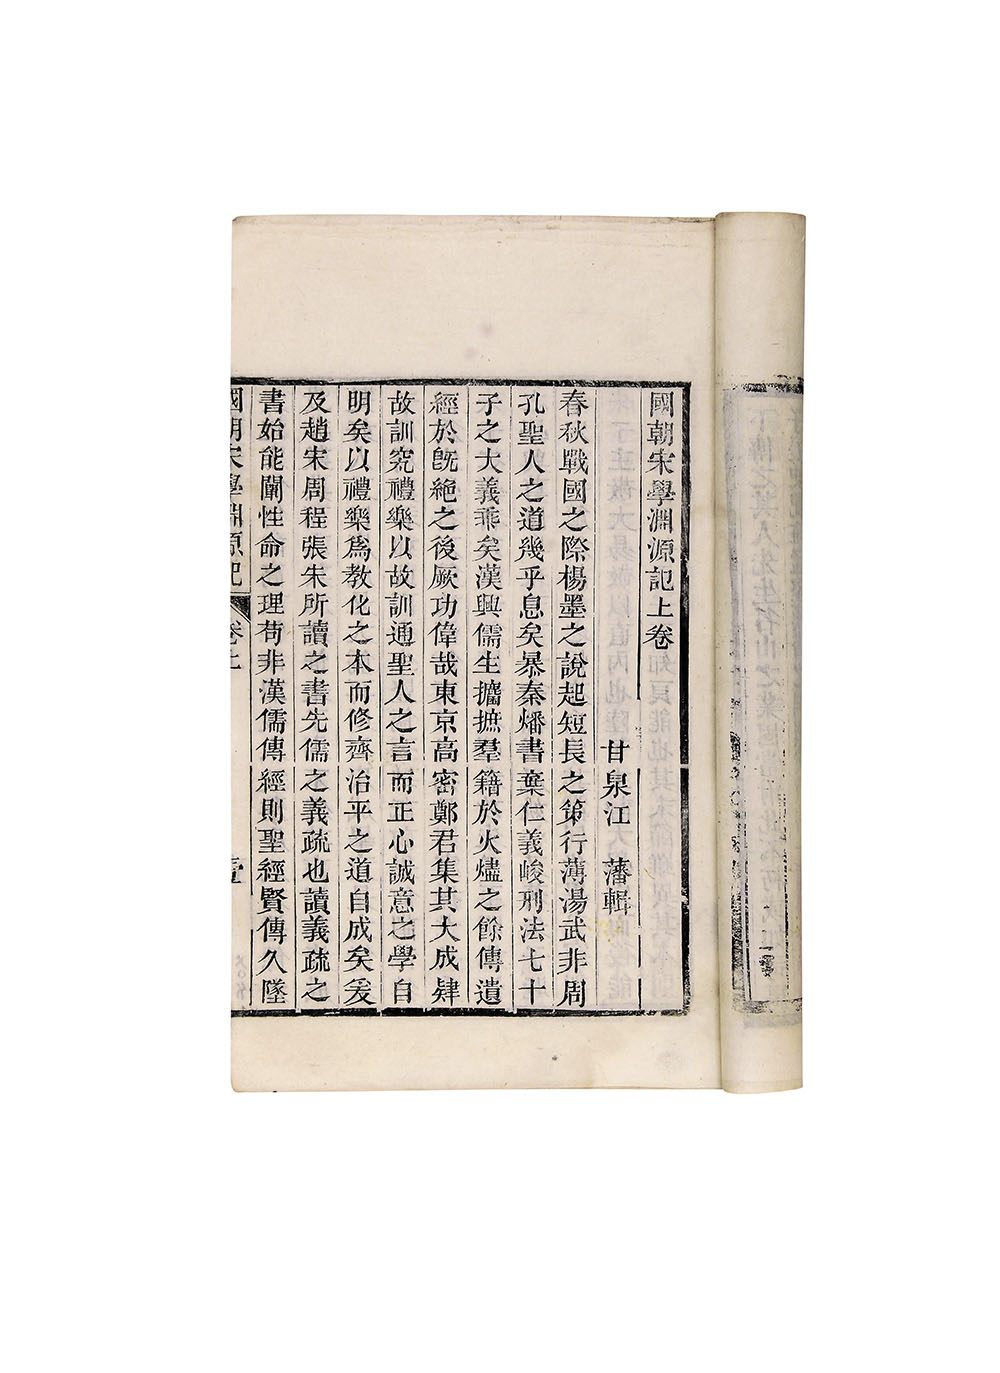 國朝宋學淵源記上卷
甘泉江 藩輯
春秋戰國之際楊墨之說起短長之策行薄湯武非周
孔聖人之道幾乎息矣暴秦燔書棄仁義峻刑法七十
子之大義乖矣漢興儒生攟摭羣籍於火燼之餘傳遺
經於旣絶之後厥功偉哉東京高密鄭君集其大成肄
故訓究禮樂以故訓通聖人之言而正心誠意之學自
明矣以禮樂爲教化之本而修齊治平之道自成矣爰
及趙宋周程張朱所讀之書先儒之義疏也讀義疏之
書始能闡性命之理苟非漢儒傳經則聖經賢傳久墜
國朝宋學淵源記 卷上 壹